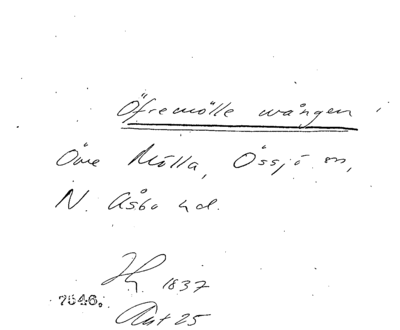 Öfremölle wången
Övre Mölla, Össjö sn,
N. Åsbo hd.
Hg. 1837
7546.
Akt 25